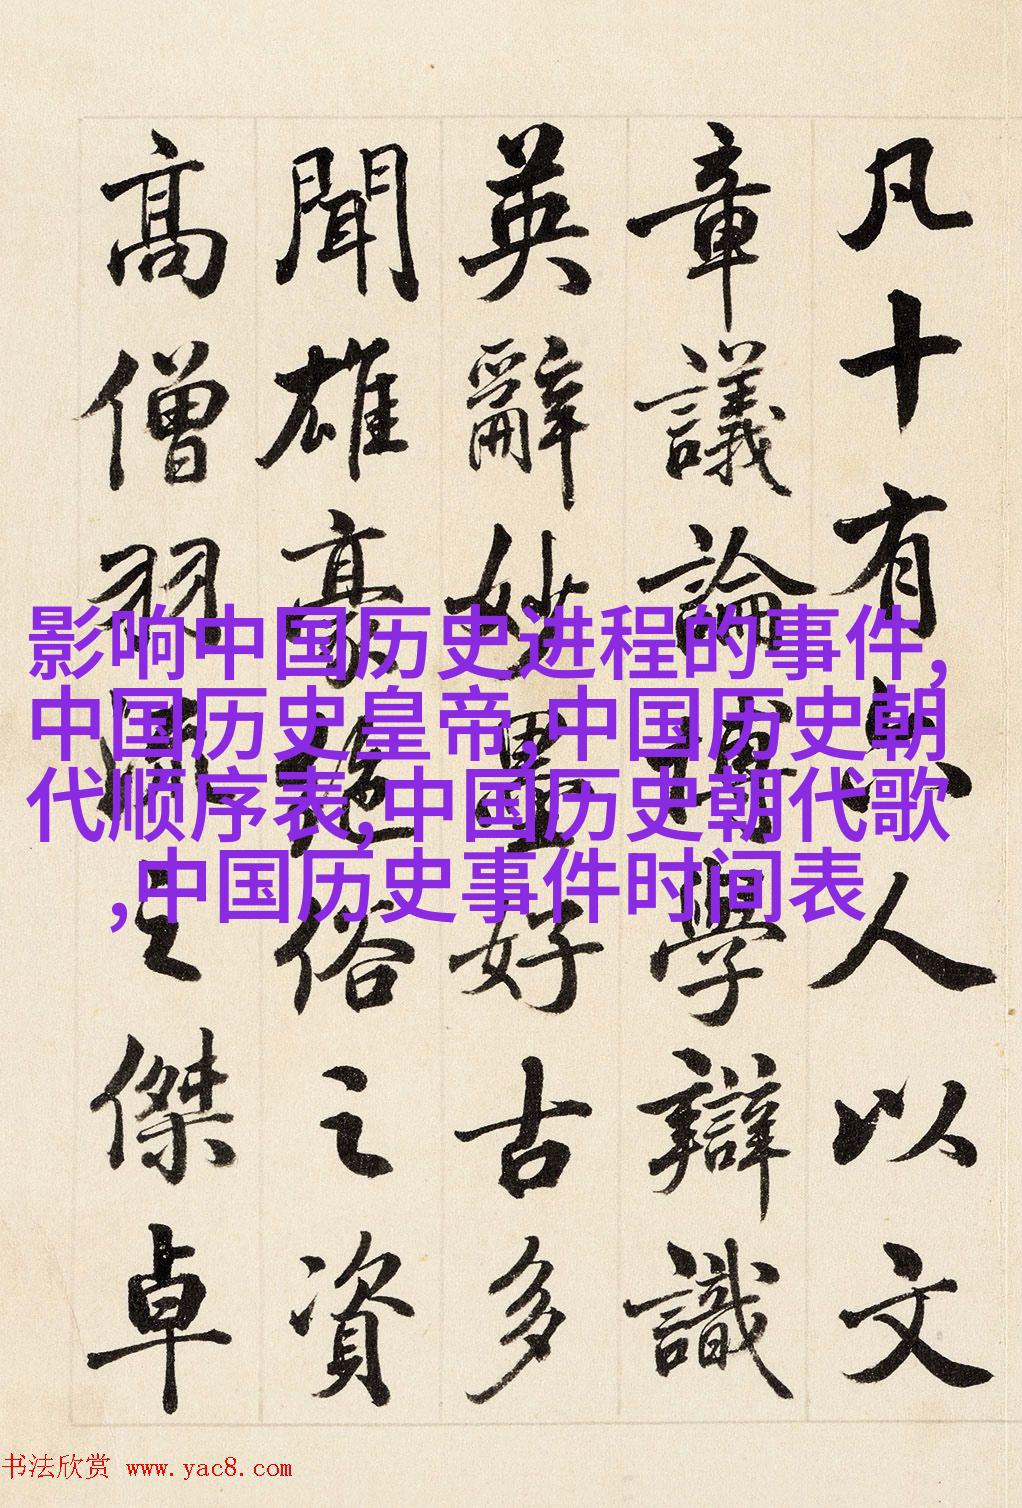 凡十有六人以文
章議論博學辯識
英辭妙墨好古多
聞雄豪絕俗之資
高僧羽流之傑卓
影响中国历史进程的事件,
中国历史皇帝,中国历史朝
代顺序表,中国历史朝代歌
,中国历史事件时间表
书法欣赏 www.yac8.com